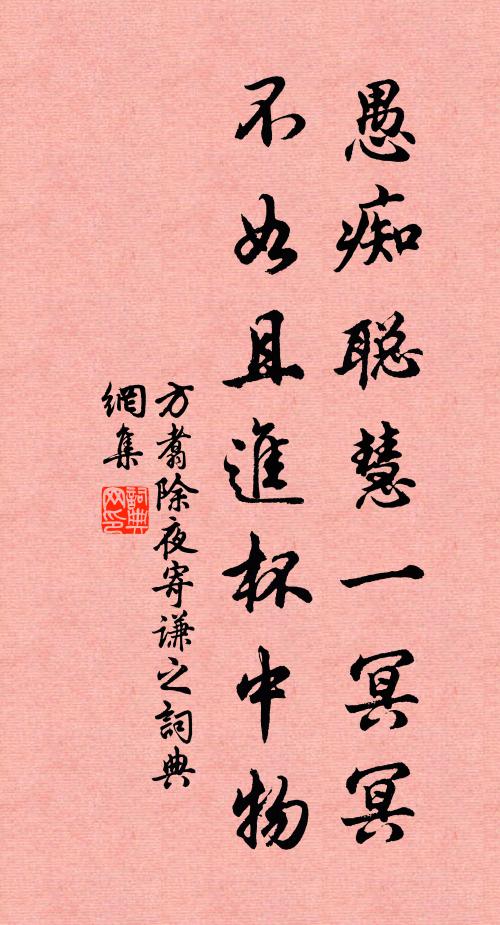 愚痴聪慧一冥冥
不如且進杯中物
方翥除夜寄谦之詞典
網集
詞典
网印